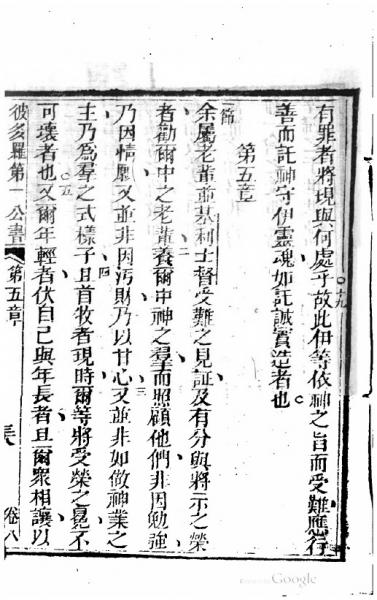 有罪者將現與何處乎故此伊等依神之旨而受難應行
十九
善而託神守伊靈魂如託誠實造者也
第五章
一節
余屬老輩並基利士督受難之見証及有分與將示之榮
者勸爾中之老輩養爾中神之羣而照顧他們非因勉強
二
乃因情願又並非因污財乃以甘心又並非如做神業之
三
主乃為羣之式樣子且首牧者現時爾等將受榮之冕不
四
可壞者也又爾年輕者伏自己與年長者且爾眾相讓以
五
彼多羅第一公書 第五章 卷八
Google